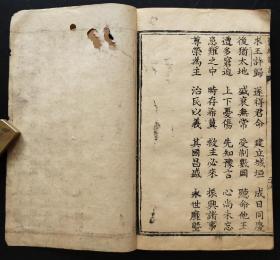 求王許歸　遂得君命　建立城垣　成日同慶
後猶太地　盛衰無常　受制數國　聽命他王
遭多窘迫　上下憂傷　先知豫言　心尚未忘
患難之中　時存希冀　救主必來　振興諸事
尊榮為主　治民以義　其國昌盛　永世靡